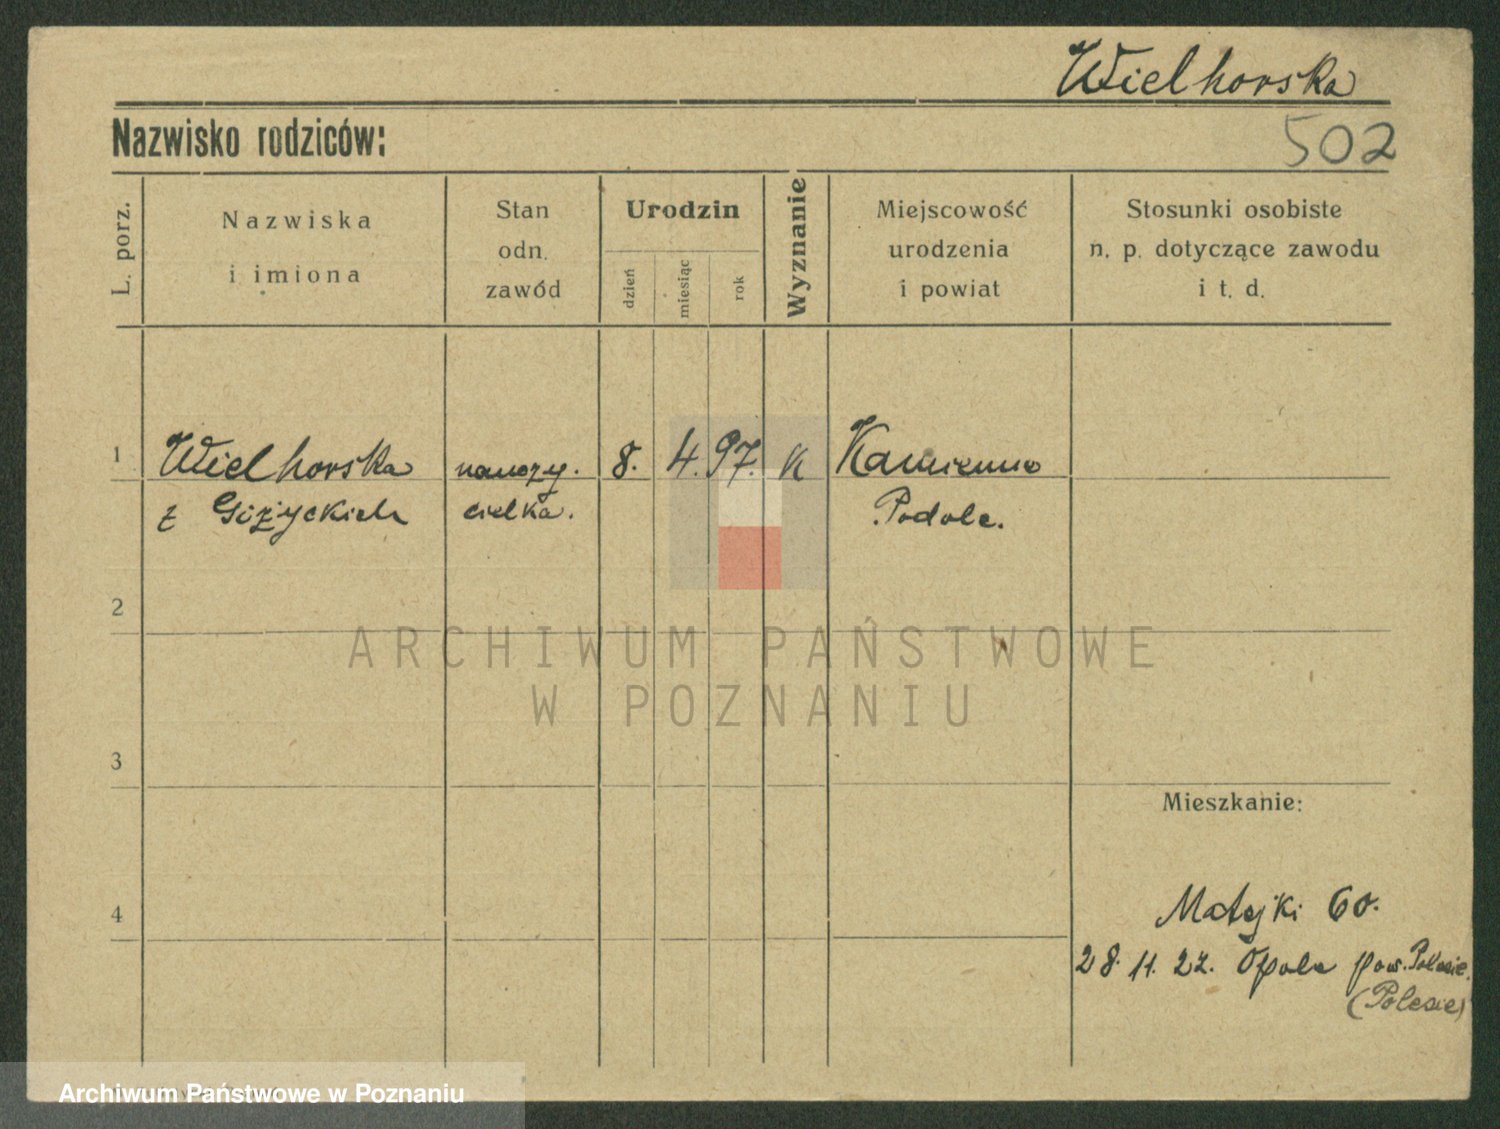 Wielhorska
Nazwisko rodziców:
502
L. porz.
Nazwiska
i imiona
Stan
odn.
zawód
Urodzin
dzień
miesiąc
rok
Wyznanie
Miejscowość
urodzenia
i powiat
Stosunki osobiste
n. p. dotyczące zawodu
i t. d.
1
Wielhorska
z Giżyckich
nauczy.
cielka.
8.
4.
97.
K
Podole.
2
ARCHIWUM PAŃSTWOWE
W POZNANIU
3
Mieszkanie:
4
Matejki 60.
28. 11. 22. Opole pow. Polesie.
(Polesie)
Archiwum Państwowe w Poznaniu